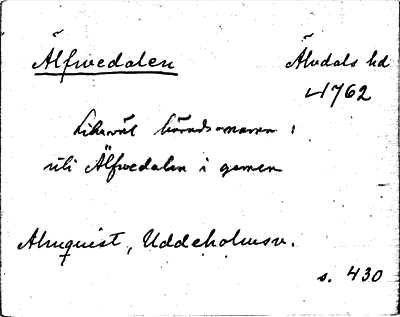 Älfwedalen
Älvdals hd
1762
Likawäl härads-
uti Älfwedalen i gemen
Almquist, Uddeholmsv.
s. 430